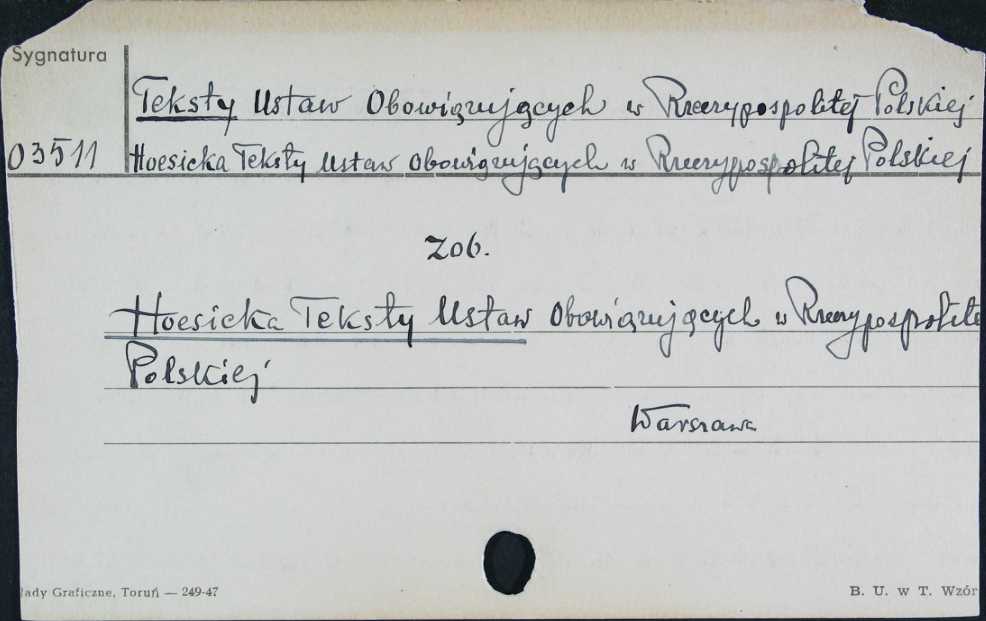 Sygnatura
Teksty Ustaw Obowiązujących w Rzeczypospolitej Polskiej
03511 Hoesicka Teksty Ustaw obowiązujących w Rzeczypospolitej Polskiej
Zob.
Hoesicka Teksty Ustaw Obowiązujących w Rzeczypospolite
Polskiej
Warszawa
łady Graficzne, Toruń — 249-47 B. U. w T. Wzór